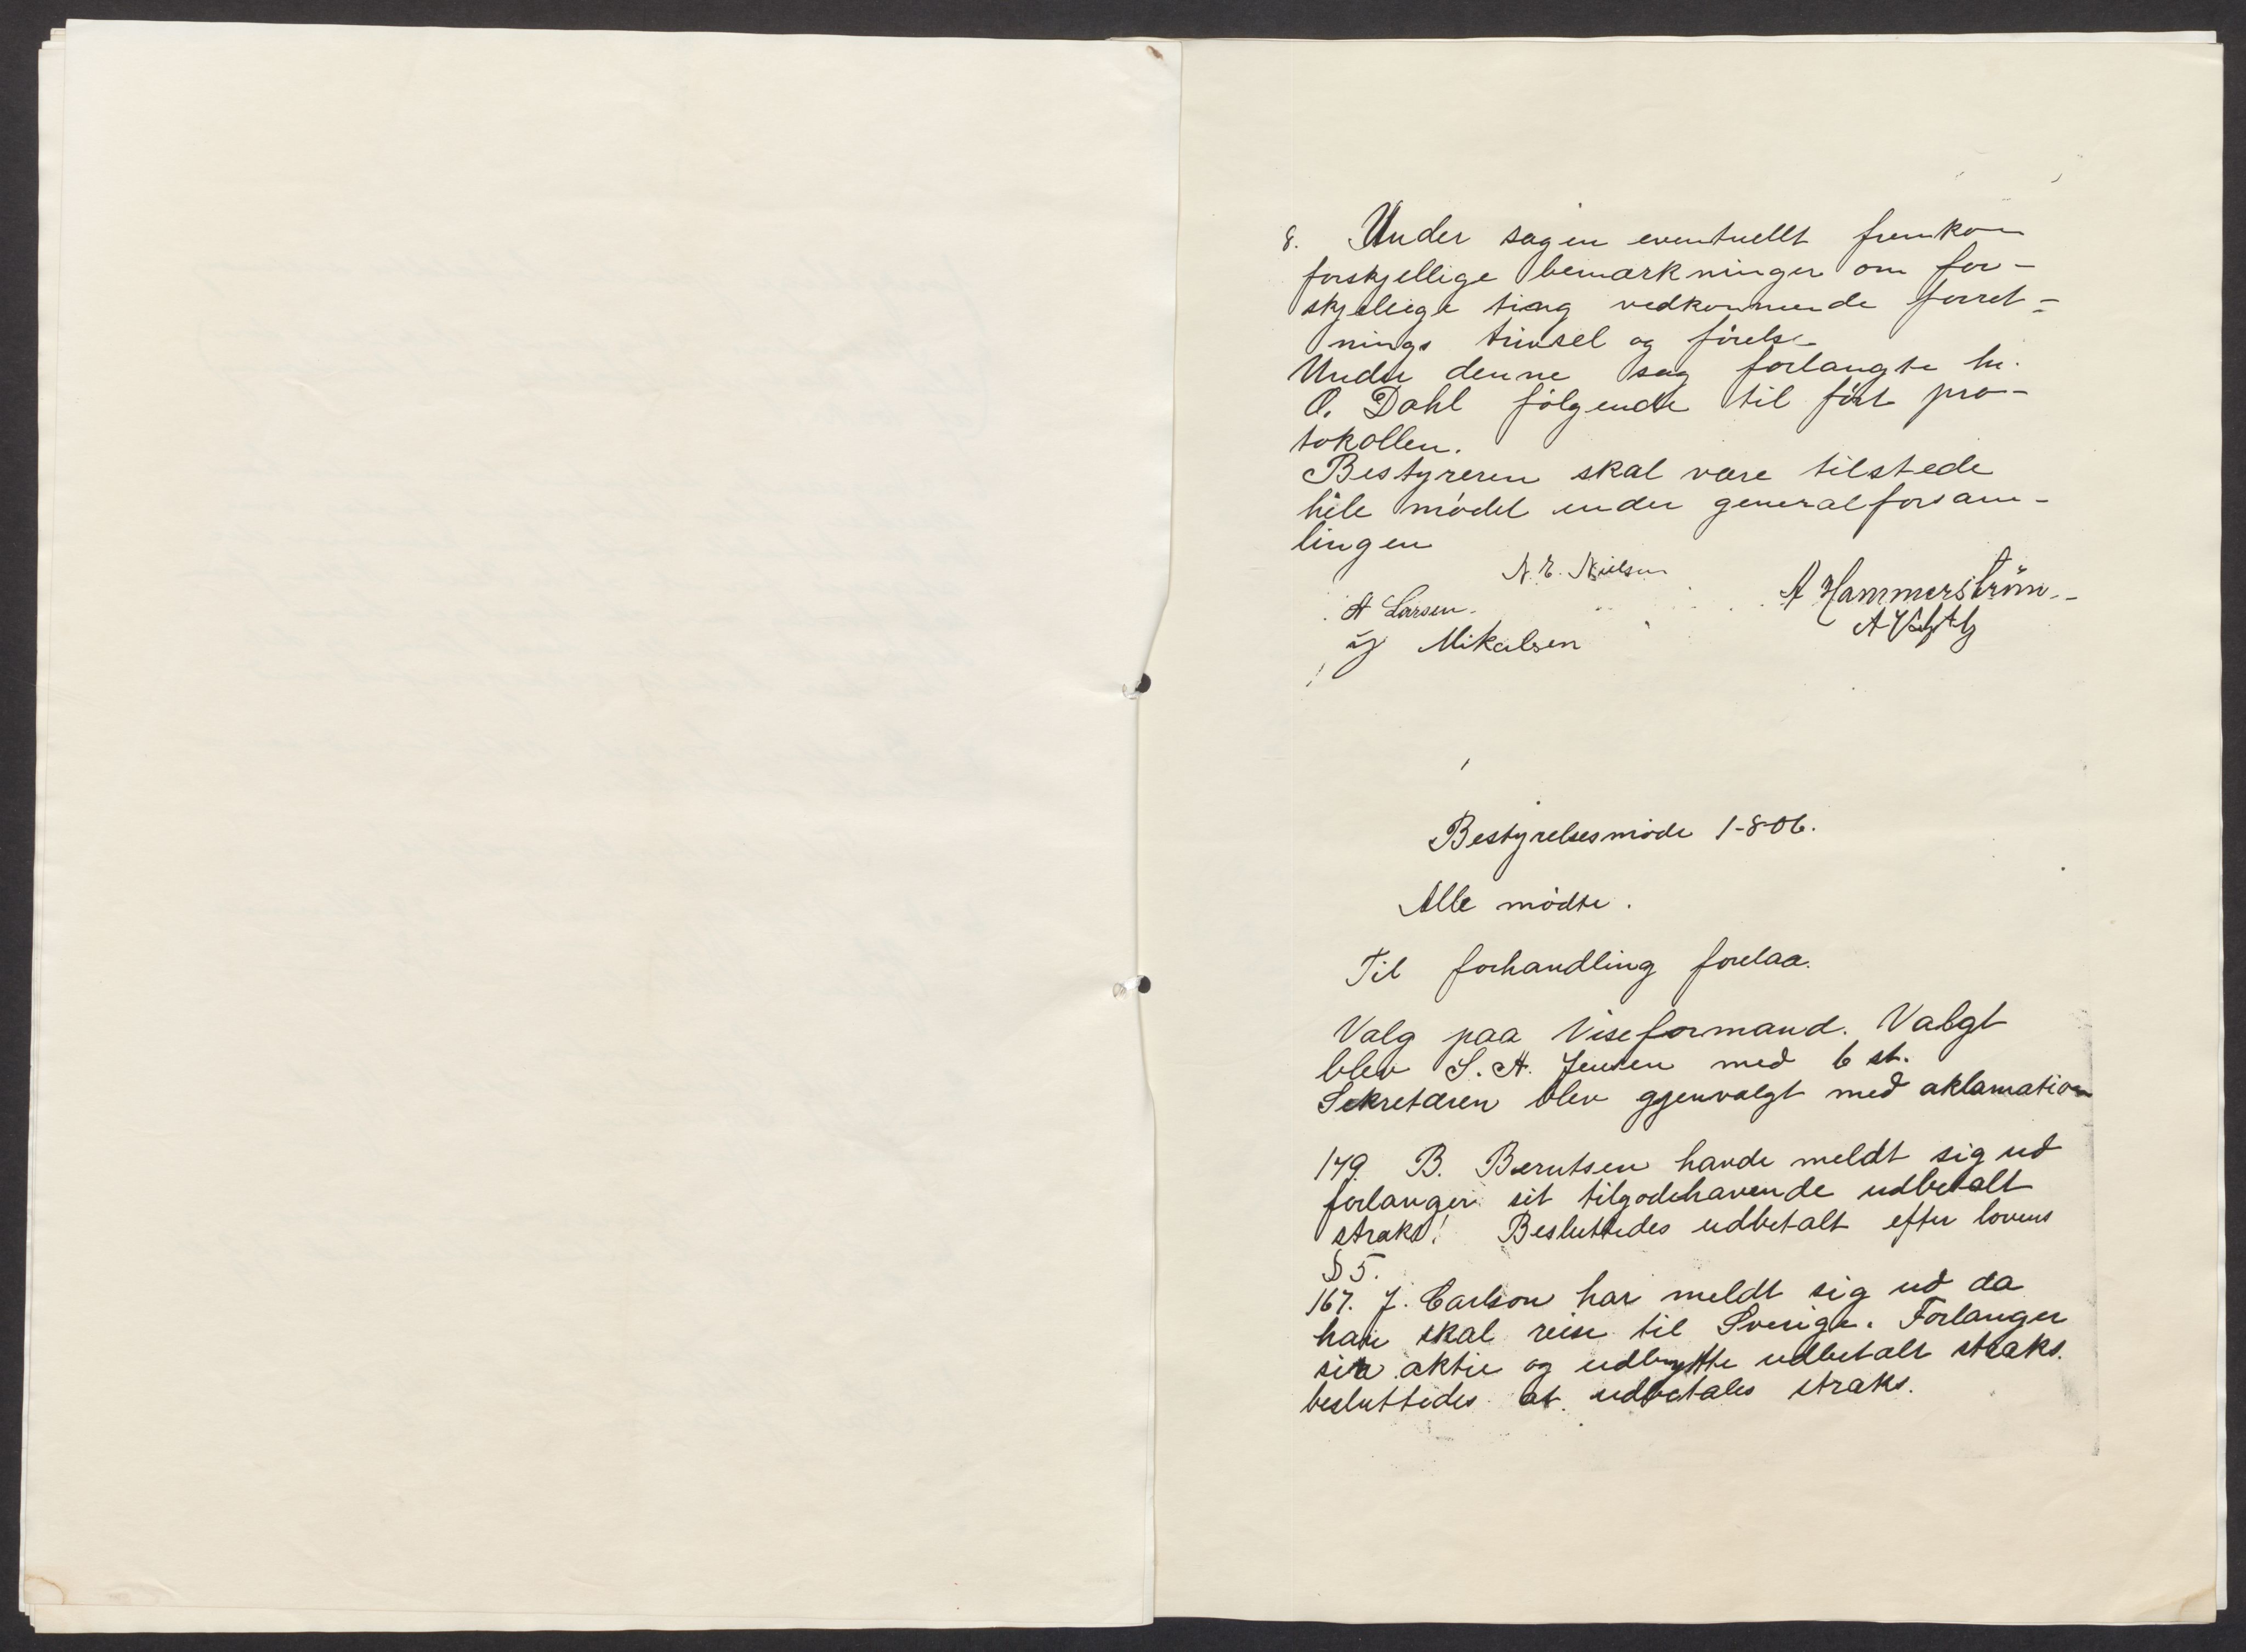 8. Under sagen eventuellt fremkom
forskjellige bemærkninger om for-
skjellige ting vedkommende forret-
nings trivsel og förelse
Under denne sag forlangte hr.
O. Dahl følgende til ført pro-
tokollen.
Bestyreren skal være tilstede
hele mødet under generalforsam-
lingen
N. E. Nielsen
A Hammerström
A Larsen.
Mikalsen
Bestyrelsesmøde 1-8-06.
Alle mødte.
Til forhandling forelaa.
Valg paa Viseformand. Valgt
blev S. A. Jensen med 6 st.
Sekretæren blev gjenvalgt med aklamation
179. B. Berntsen havde meldt sig ud
forlanger sit tilgodehavende udbetalt
straks! Besluttedes udbetalt efter lovens
§ 5.
167. J. Carlson har meldt sig ud da
han skal reise til Sverige. Forlanger
sin aktie og udbytte udbetalt straks.
besluttedes at udbetales straks.